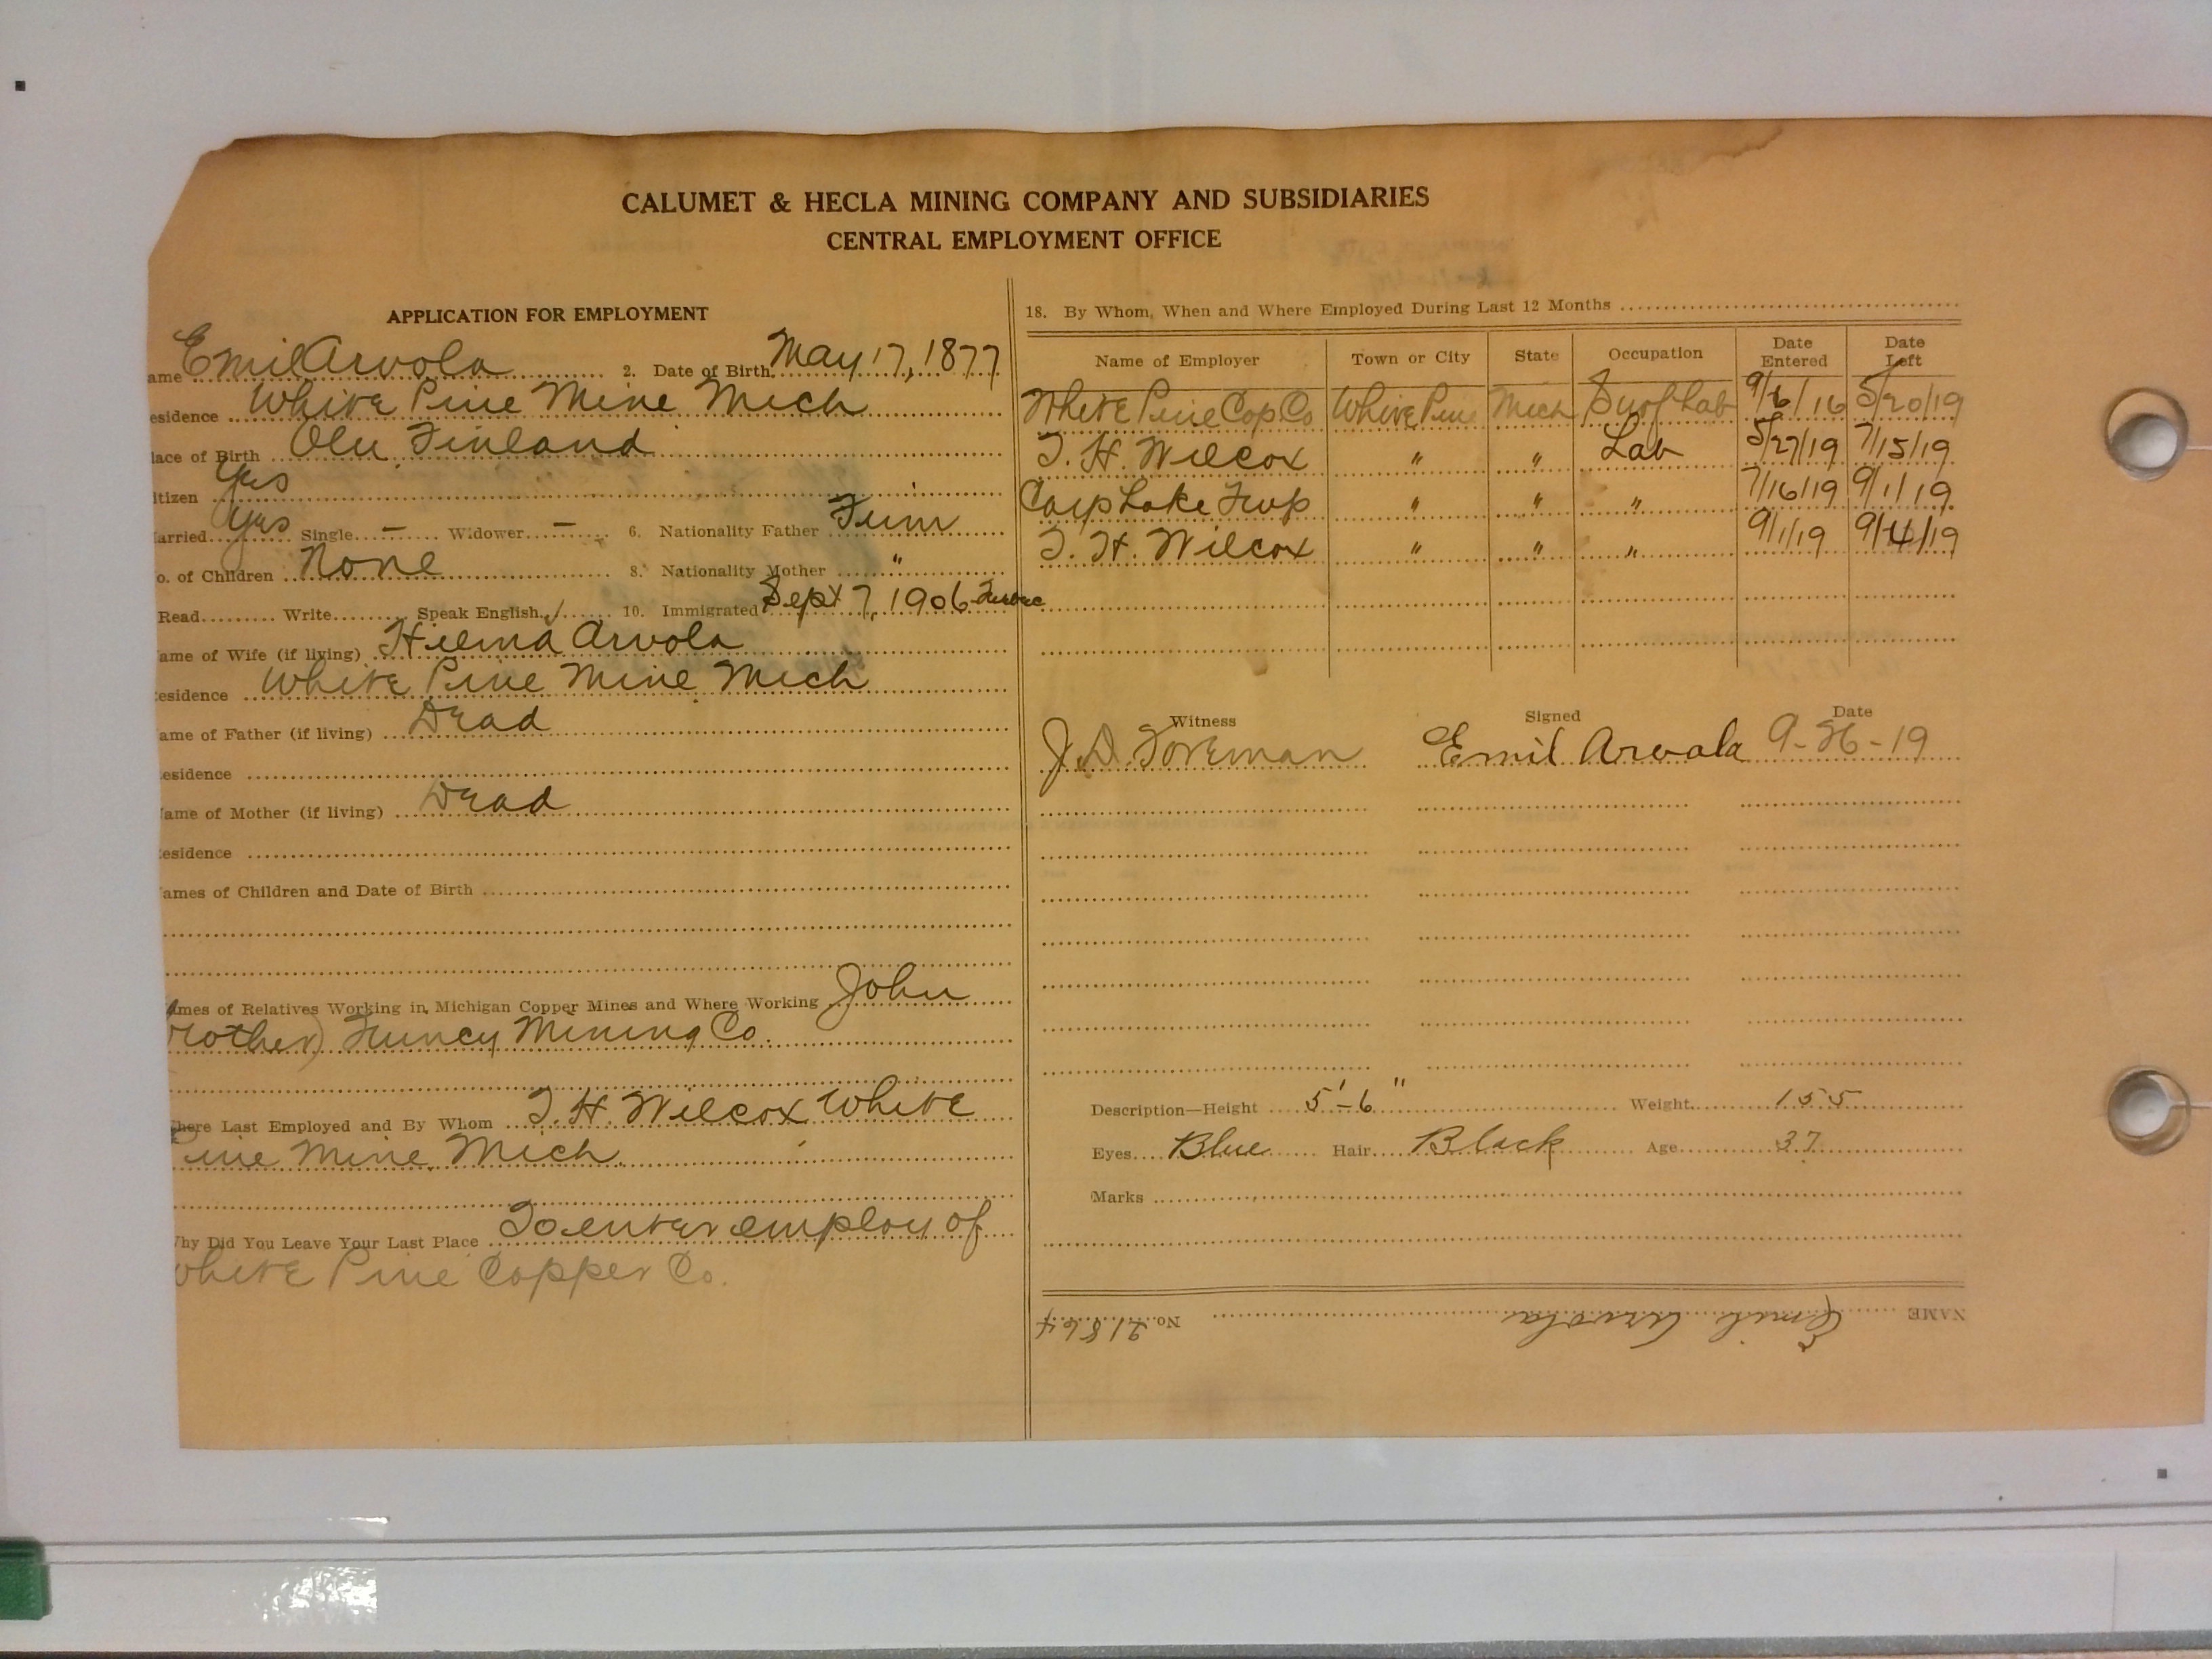 CALUMET & HECLA MINING COMPANY AND SUBSIDIARIES
CENTRAL EMPLOYMENT OFFICE
APPLICATION FOR EMPLOYMENT
ame Emil Arvola 2. Date of Birth May 17, 1877
esidence White Pine Mine Mich
lace of Birth Olu, Finland
itizen Yes
arried Yes Single — Widower — 6. Nationality Father Finn
o. of Children None 8. Nationality Mother "
Read Write Speak English / 10. Immigrated Sept 7, 1906
ame of Wife (if living) Hilma Arvola
esidence White Pine Mine Mich
ame of Father (if living) Dead
esidence
ame of Mother (if living) Dead
esidence
ames of Children and Date of Birth
ames of Relatives Working in Michigan Copper Mines and Where Working John
rother) Mining Co.
here Last Employed and By Whom T. H. Wilcox White
Pine Mine, Mich.
hy Did You Leave Your Last Place To enter employ of
White Pine Copper Co.
18. By Whom, When and Where Employed During Last 12 Months
Name of Employer Town or City State Occupation Date Entered Date Left
White Pine Cop Co White Pine Mich Surf Lab 9/6/16 5/20/19
T. H. Wilcox " " Lab 5/27/19 7/15/19
Carp Lake Twp " " " 7/16/19 9/1/19
T. H. Wilcox " " " 9/1/19 9/14/19
Witness Signed Date
J. D. Foreman Emil Arvola 9-26-19
Description—Height 5'-6" Weight 155
Eyes Blue Hair Black Age 37
Marks
NAME Emil Arvola No. 21564